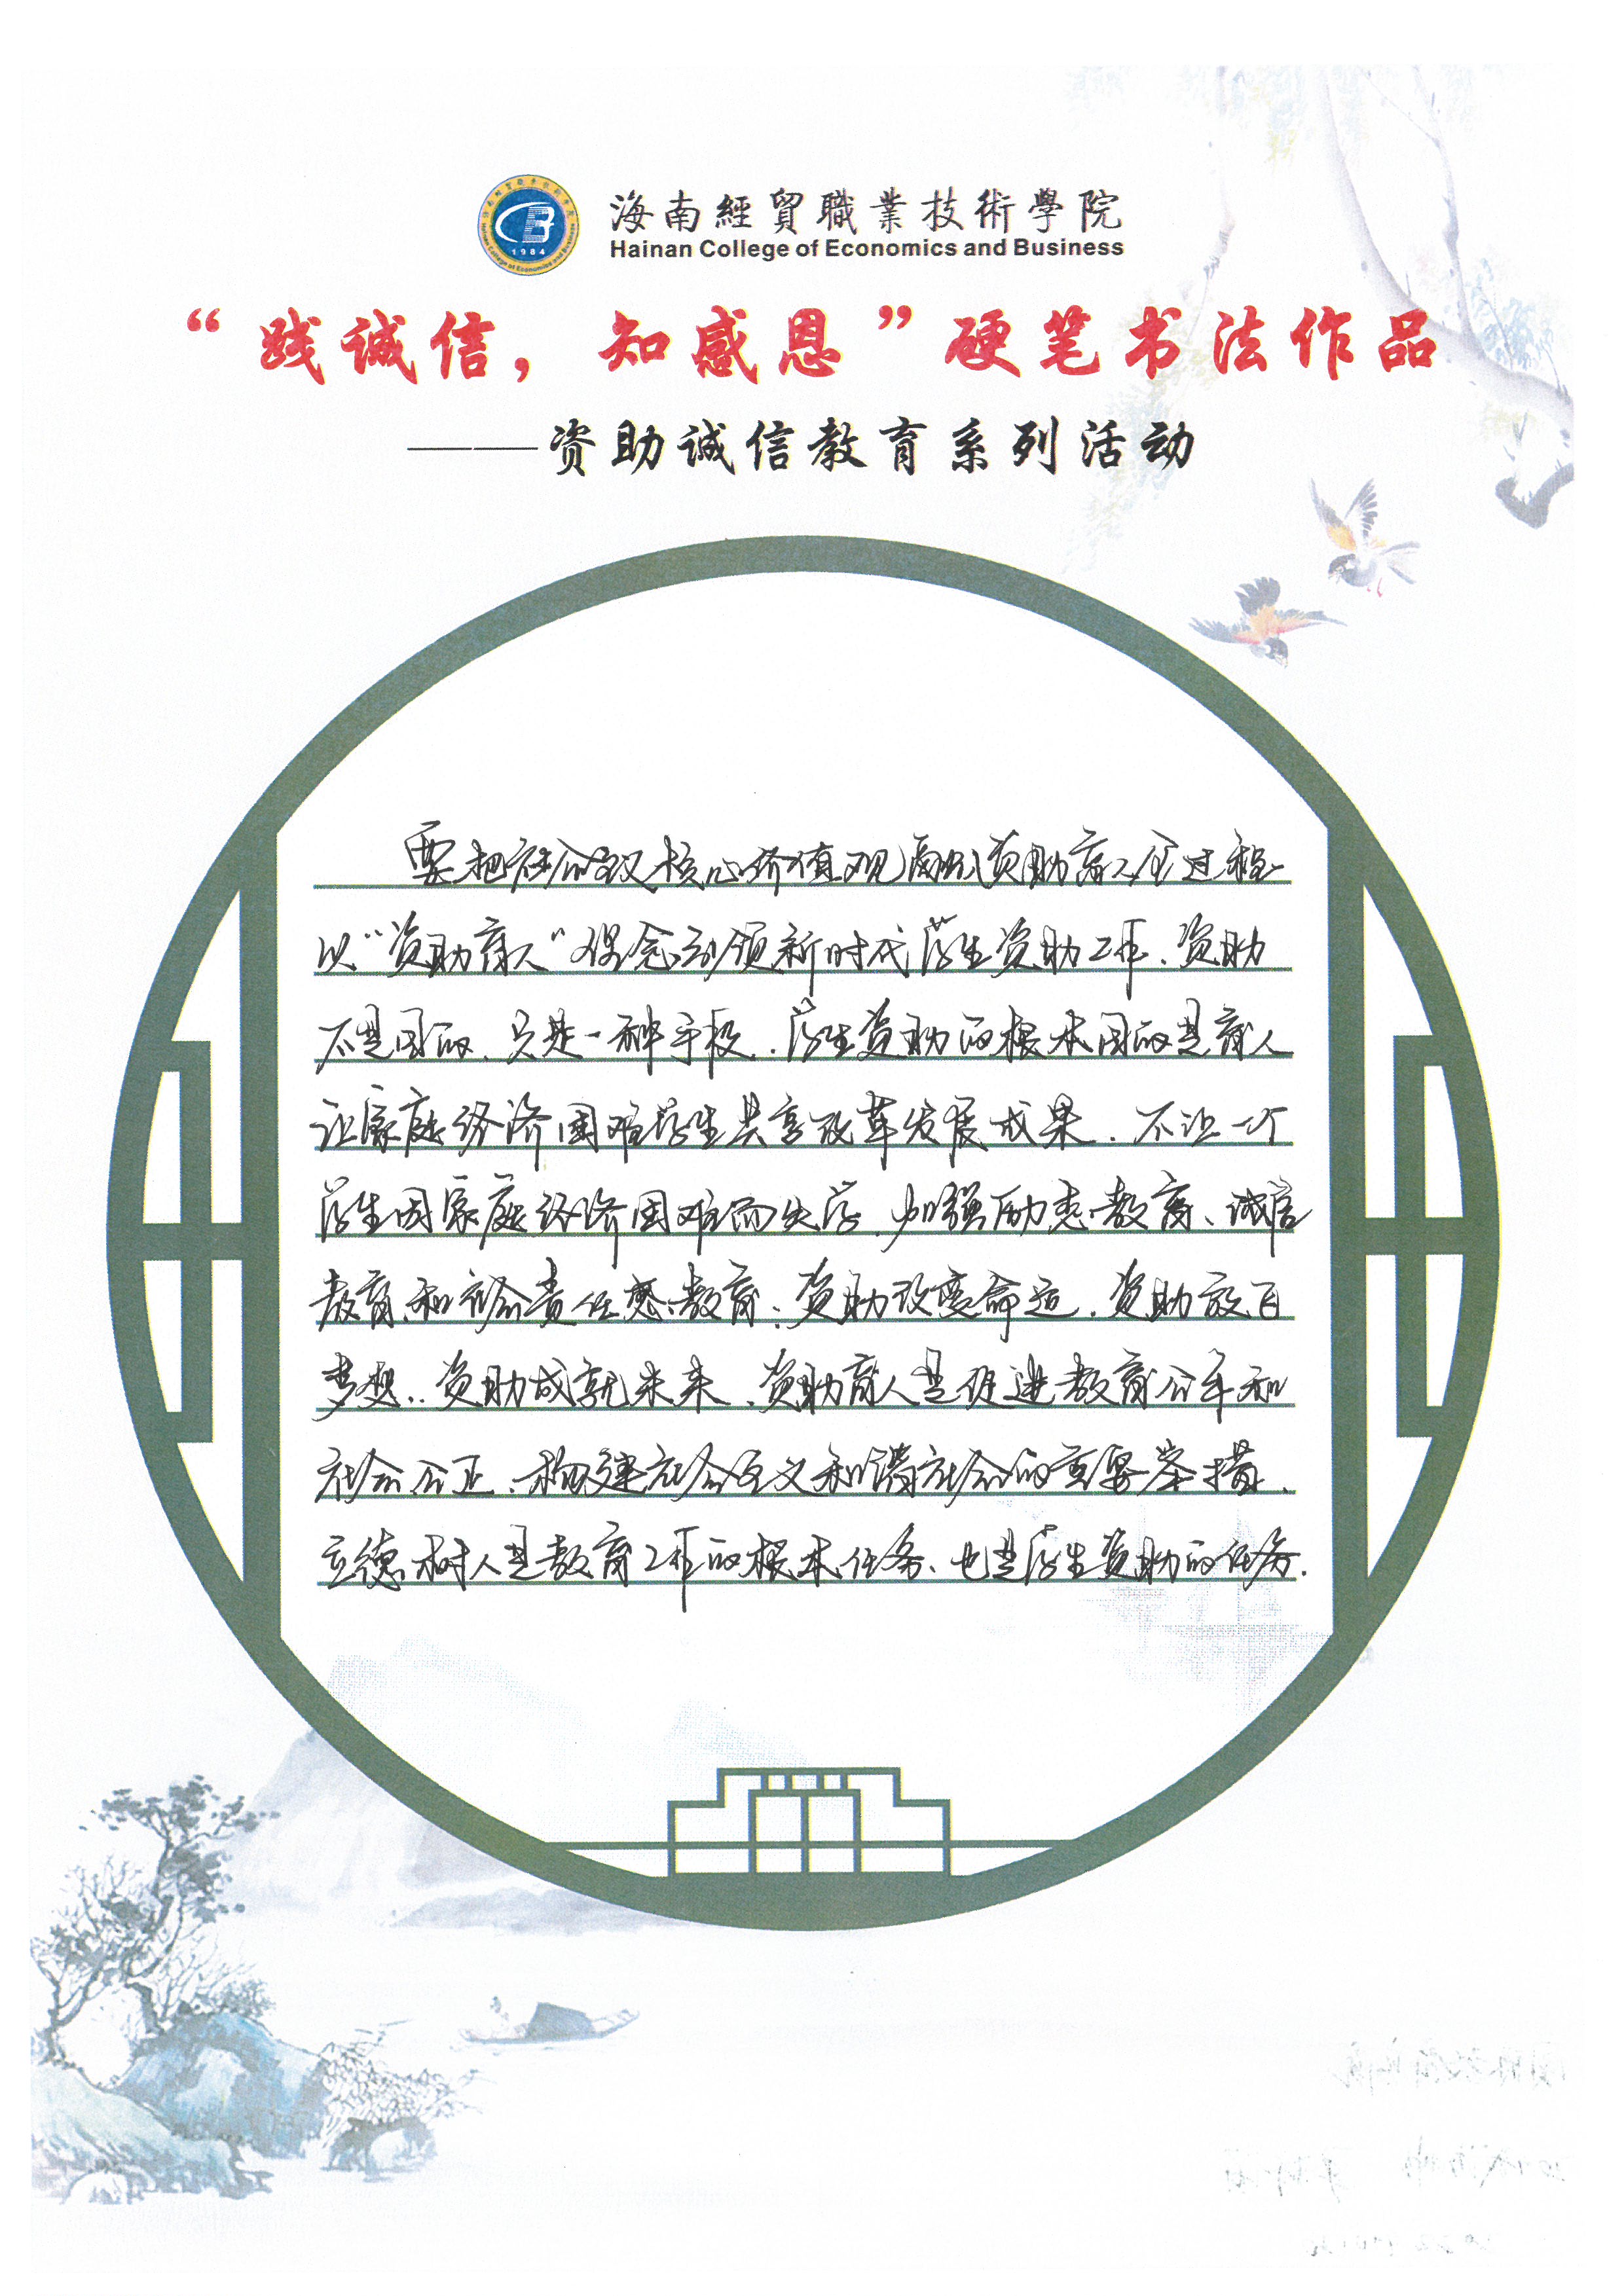 海南經貿職業技術學院
Hainan College of Economics and Business
1984
“践诚信，知感恩”硬笔书法作品
——资助诚信教育系列活动
要把社会主义核心价值观融入资助育人全过程
以“资助育人”理念引领新时代学生资助工作.资助
不是目的.只是一种手段.学生资助的根本目的是育人
让家庭经济困难学生共享改革发展成果.不让一个
学生因家庭经济困难而失学.加强励志教育、诚信
教育和社会责任感教育.资助改变命运.资助放飞
梦想..资助成就未来.资助育人是促进教育公平和
社会公正、构建社会主义和谐社会的重要举措.
立德树人是教育工作的根本任务、也是学生资助的任务.